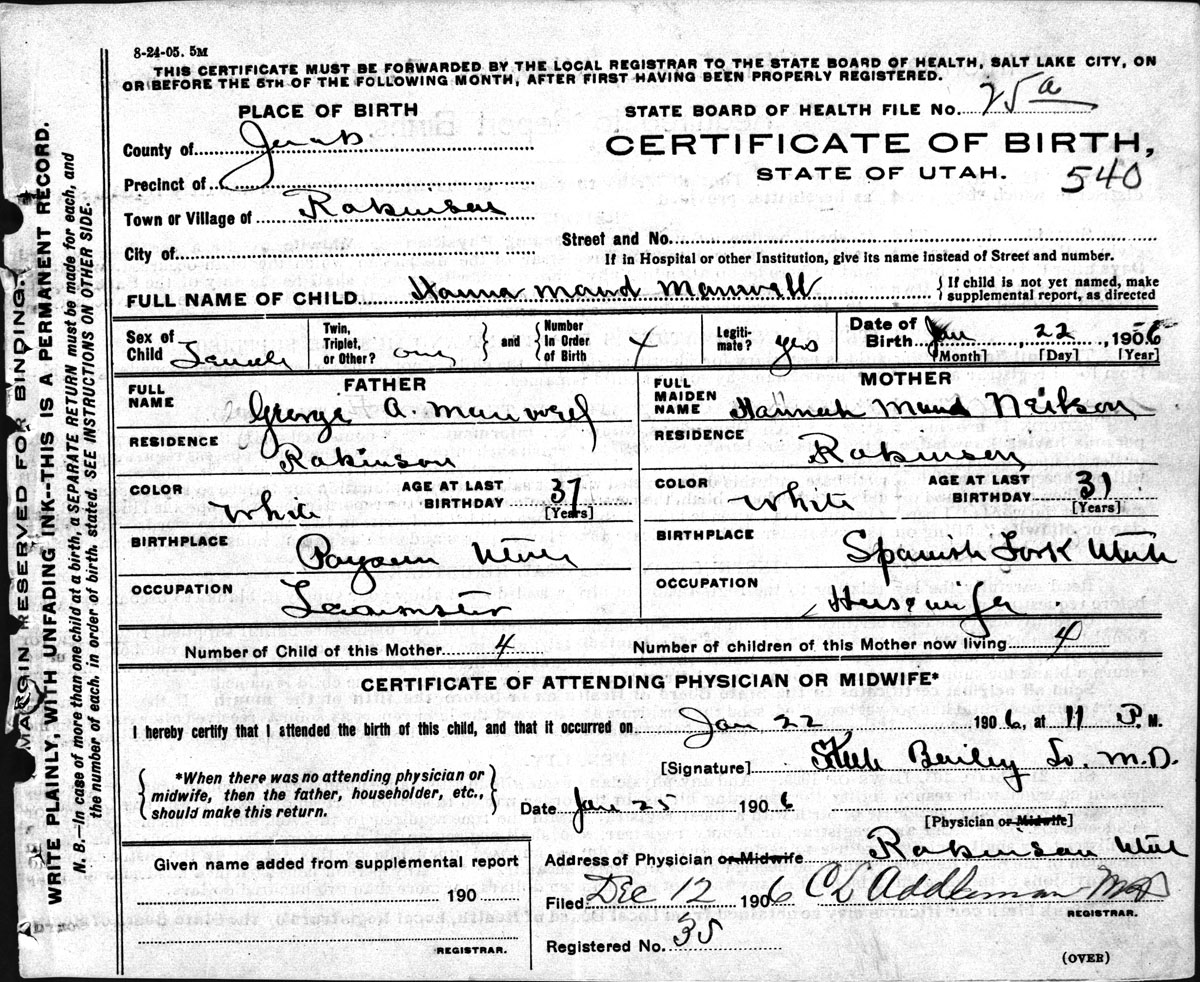 8-24-05. 5M
THIS CERTIFICATE MUST BE FORWARDED BY THE LOCAL REGISTRAR TO THE STATE BOARD OF HEALTH, SALT LAKE CITY, ON
OR BEFORE THE 5TH OF THE FOLLOWING MONTH, AFTER FIRST HAVING BEEN PROPERLY REGISTERED.
PLACE OF BIRTH
STATE BOARD OF HEALTH FILE No. 25 a
County of Juab
CERTIFICATE OF BIRTH,
STATE OF UTAH. 540
Precinct of
Town or Village of Robinson
Street and No.
City of
If in Hospital or other Institution, give its name instead of Street and number.
FULL NAME OF CHILD Hanna Maud Manwell { If child is not yet named, make
supplemental report, as directed
Sex of Child Female
Twin, Triplet, or Other? one } and { Number In Order of Birth 4
Legitimate? yes
Date of Birth Jan, 22, 1906
[Month] [Day] [Year]
FATHER
FULL NAME George A. Manwell
RESIDENCE Robinson
COLOR White
AGE AT LAST BIRTHDAY 37 [Years]
BIRTHPLACE Payson Utah
OCCUPATION Teamster
MOTHER
FULL MAIDEN NAME Hannah Maud Neilson
RESIDENCE Robinson
COLOR White
AGE AT LAST BIRTHDAY 31 [Years]
BIRTHPLACE Spanish Fork Utah
OCCUPATION Housewife
Number of Child of this Mother 4 Number of children of this Mother now living 4
CERTIFICATE OF ATTENDING PHYSICIAN OR MIDWIFE*
I hereby certify that I attended the birth of this child, and that it occurred on Jan 22 1906, at 11 P. M.
[Signature] Steele Bailey Jr. M.D.
{ *When there was no attending physician or
midwife, then the father, householder, etc.,
should make this return. }
Date Jan 25 1906
[Physician or Midwife]
Given name added from supplemental report
190
REGISTRAR.
Address of Physician or Midwife Robinson Utah
Filed Dec 12 1906 C L Addleman MD
REGISTRAR.
Registered No. 35
(OVER)
MARGIN RESERVED FOR BINDING.
WRITE PLAINLY, WITH UNFADING INK--THIS IS A PERMANENT RECORD.
N. B.--In case of more than one child at a birth, a SEPARATE RETURN must be made for each, and
the number of each, in order of birth, stated. SEE INSTRUCTIONS ON OTHER SIDE.